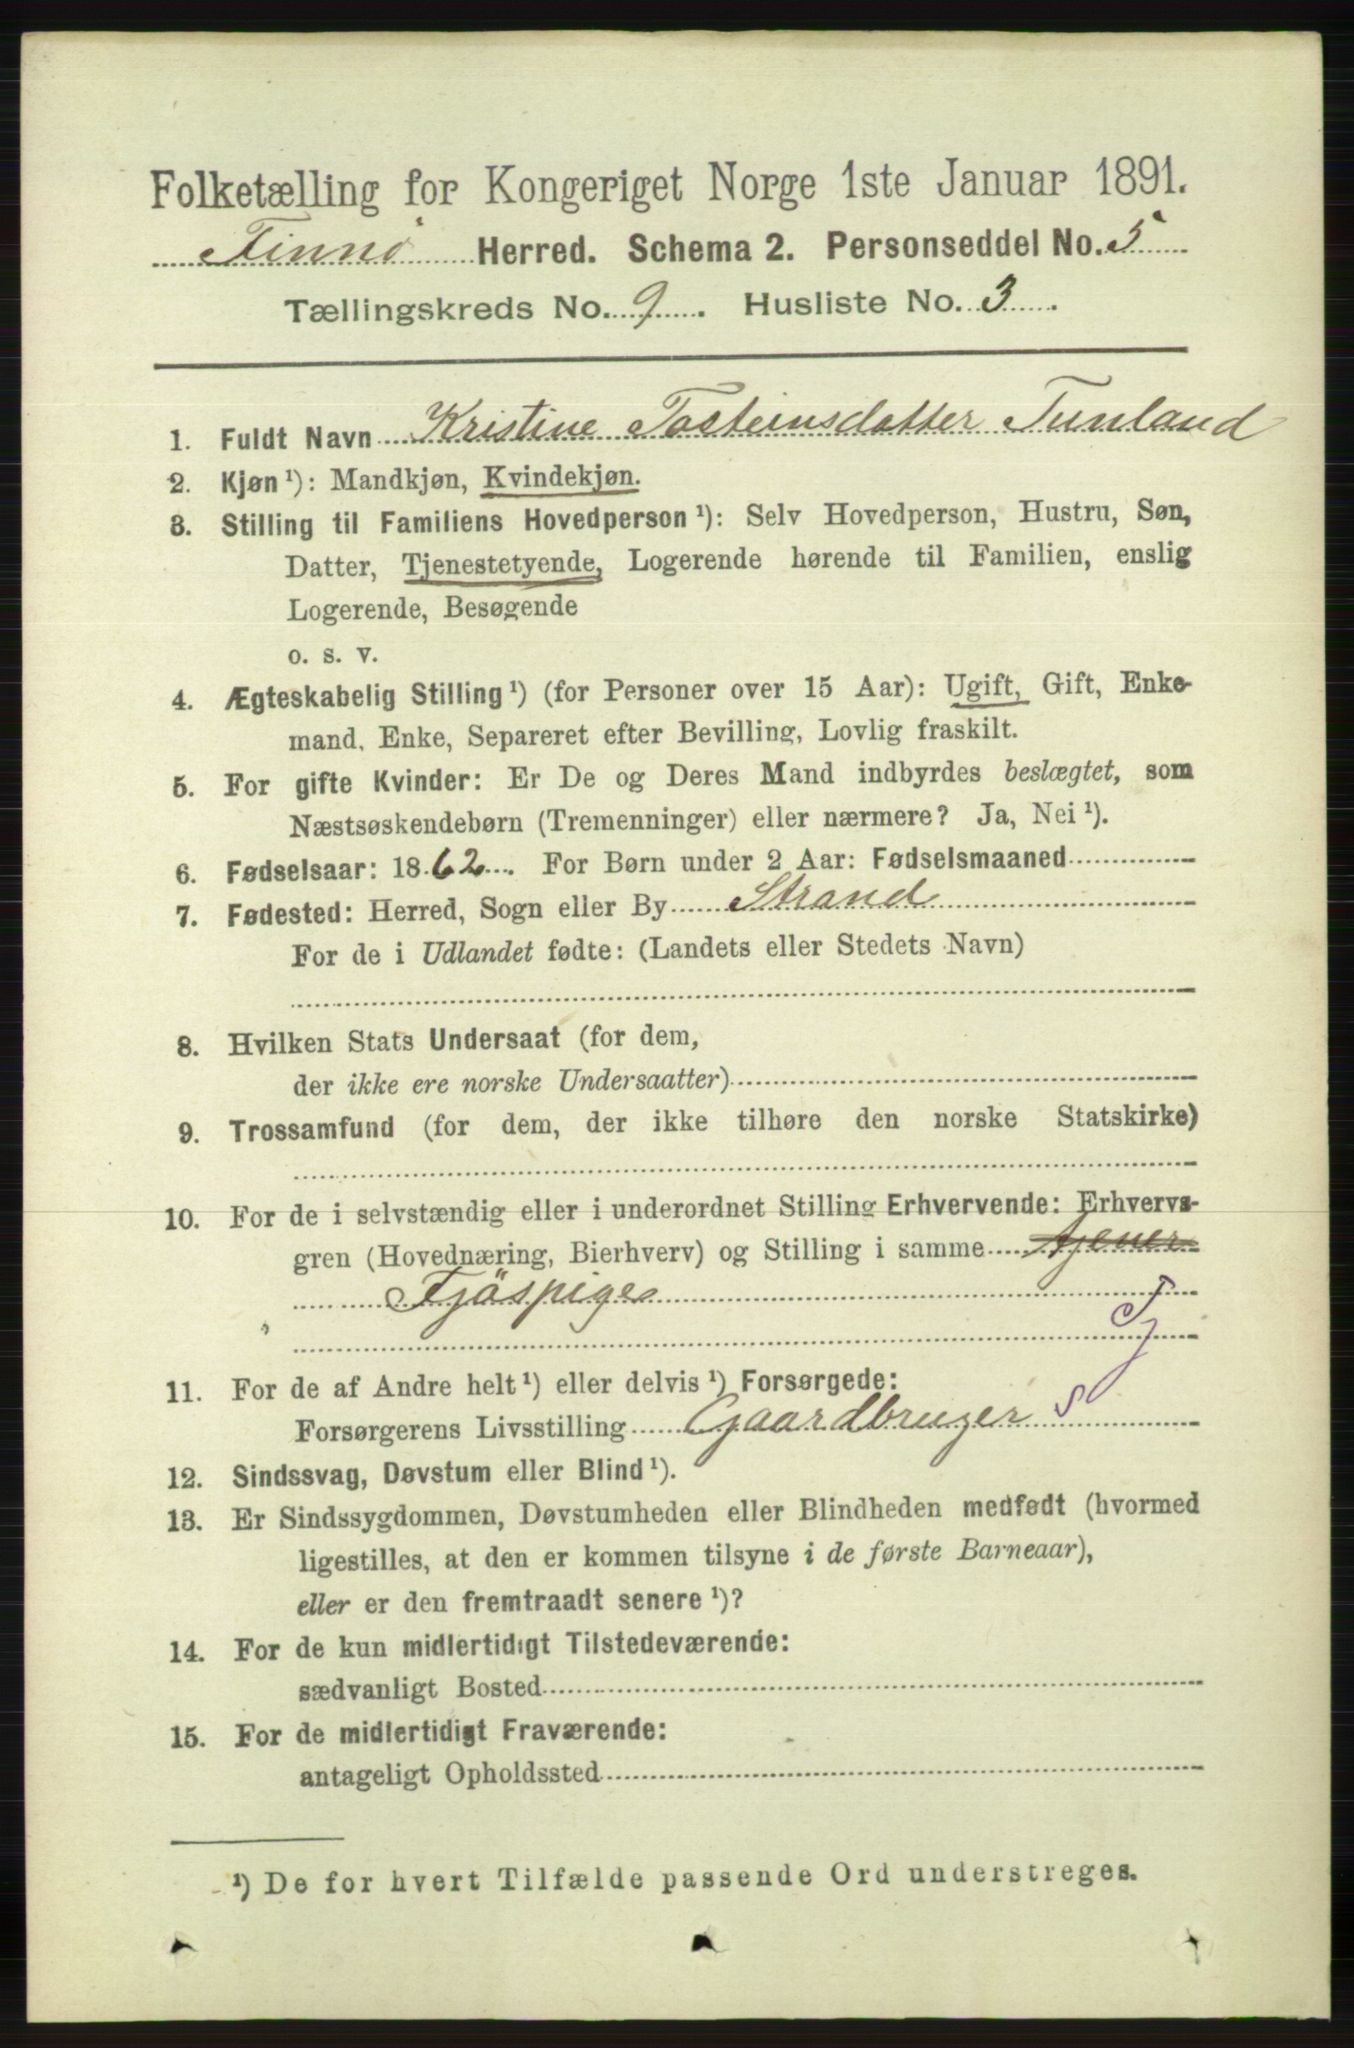 Folketælling for Kongeriget Norge 1ste Januar 1891.
Finnö Herred. Schema 2. Personseddel No. 5
Tællingskreds No. 9. Husliste No. 3.
1. Fuldt Navn Kristine Tosteinsdatter Tunland
2. Kjøn ¹): Mandkjøn, Kvindekjøn.
3. Stilling til Familiens Hovedperson ¹): Selv Hovedperson, Hustru, Søn,
Datter, Tjenestetyende, Logerende hørende til Familien, enslig
Logerende, Besøgende
o. s. v.
4. Ægteskabelig Stilling ¹) (for Personer over 15 Aar): Ugift, Gift, Enke-
mand, Enke, Separeret efter Bevilling, Lovlig fraskilt.
5. For gifte Kvinder: Er De og Deres Mand indbyrdes beslægtet, som
Næstsøskendebørn (Tremenninger) eller nærmere? Ja, Nei ¹).
6. Fødselsaar: 1862. For Børn under 2 Aar: Fødselsmaaned
7. Fødested: Herred, Sogn eller By Strand
For de i Udlandet fødte: (Landets eller Stedets Navn)
8. Hvilken Stats Undersaat (for dem,
der ikke ere norske Undersaatter)
9. Trossamfund (for dem, der ikke tilhøre den norske Statskirke)
10. For de i selvstændig eller i underordnet Stilling Erhvervende: Erhvervs-
gren (Hovednæring, Bierhverv) og Stilling i samme Tjener
Fjöspige
Tj
11. For de af Andre helt ¹) eller delvis ¹) Forsørgede:
Forsørgerens Livsstilling Gaardbruger s
12. Sindssvag, Døvstum eller Blind ¹).
13. Er Sindssygdommen, Døvstumheden eller Blindheden medfødt (hvormed
ligestilles, at den er kommen tilsyne i de første Barneaar),
eller er den fremtraadt senere ¹)?
14. For de kun midlertidigt Tilstedeværende:
sædvanligt Bosted
15. For de midlertidigt Fraværende:
antageligt Opholdssted
¹) De for hvert Tilfælde passende Ord understreges.